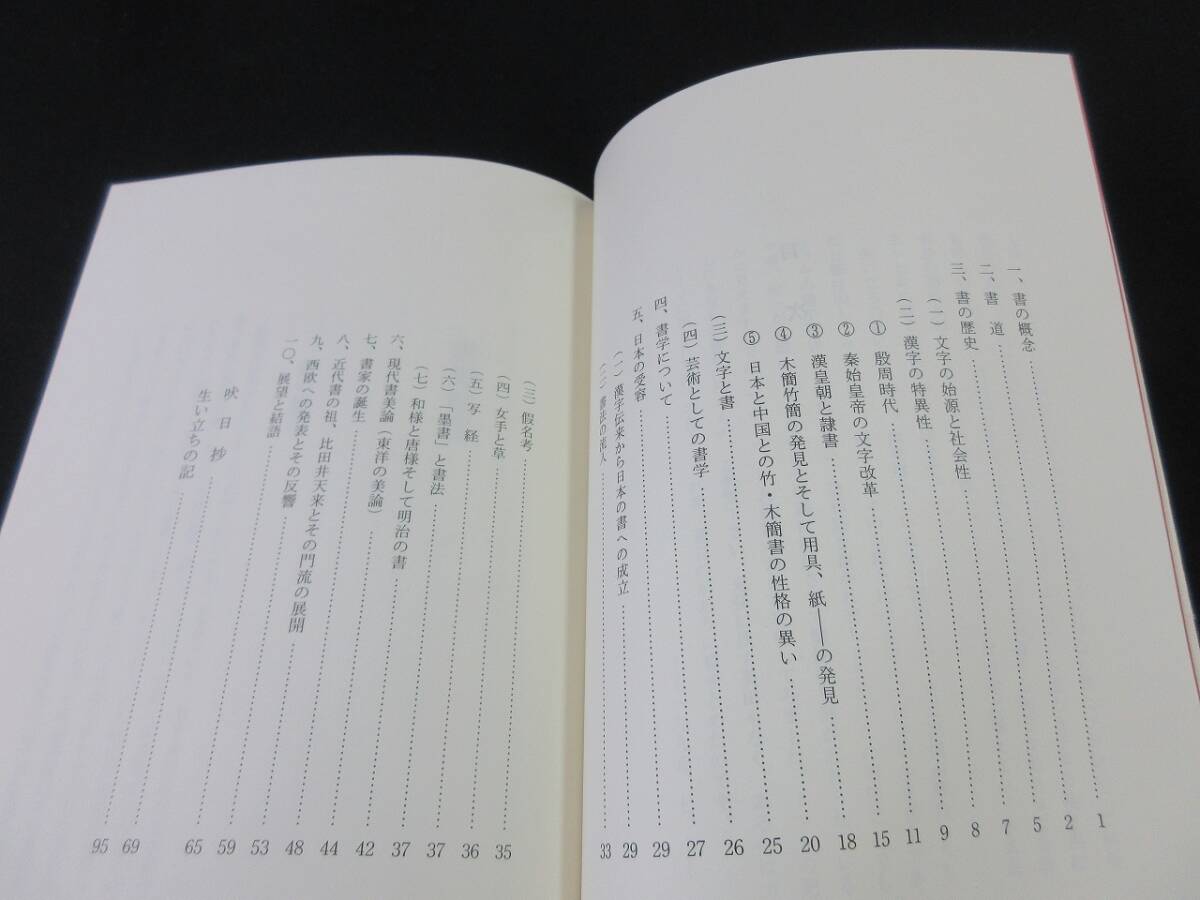 一、書の概念……1
二、書　道……2
三、書の歴史……5
（一）文字の始源と社会性……7
（二）漢字の特異性……8
①　殷周時代……9
②　秦始皇帝の文字改革……11
③　漢皇朝と隷書……15
④　木簡竹簡の発見とそして用具、紙――の発見……18
⑤　日本と中国との竹・木簡書の性格の異い……20
（三）文字と書……25
（四）芸術としての書学……26
四、書学について……27
五、日本の受容……29
（一）漢字伝来から日本の書への成立……29
（二）書法の流入……33
（三）假名考……35
（四）女手と草……36
（五）写　経……37
（六）「墨書」と書法……37
（七）和様と唐様そして明治の書……42
六、現代書美論（東洋の美論）……44
七、書家の誕生……48
八、近代書の祖、比田井天来とその門流の展開……53
九、西欧への発表とその反響……59
一〇、展望と結語……65
吠　日　抄……69
生い立ちの記……95